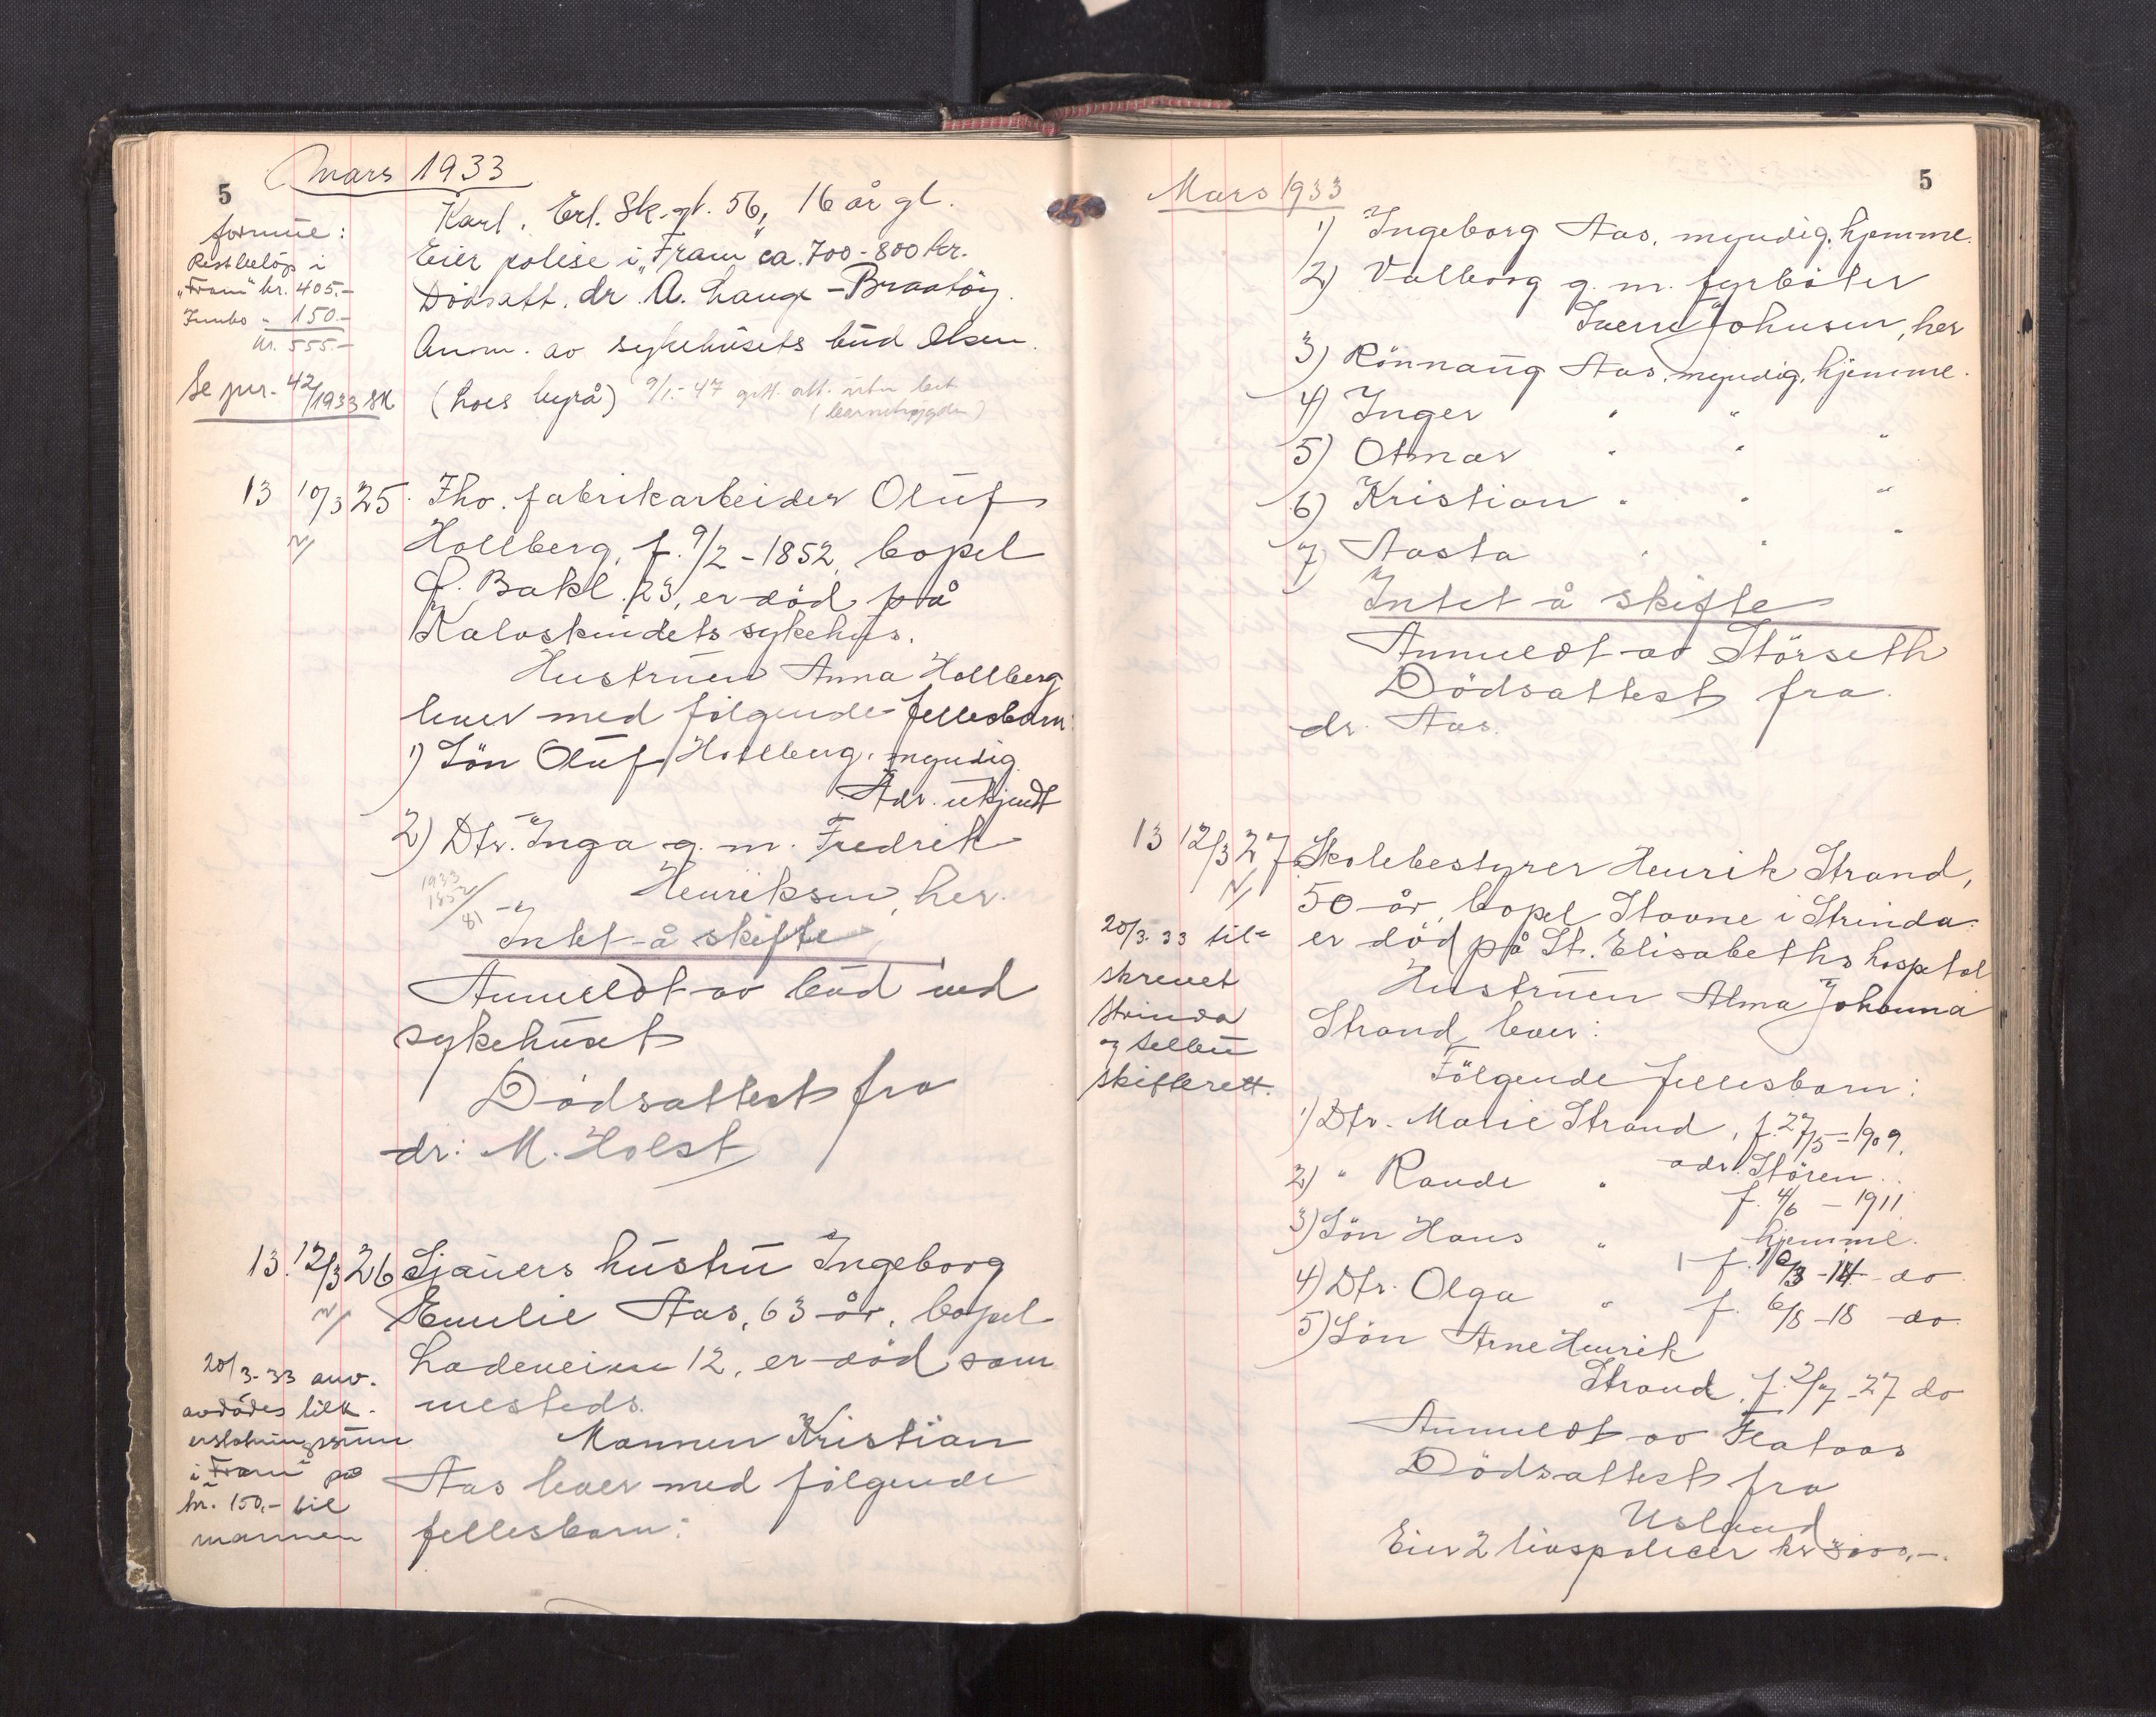 5
Mars 1933
Karl, Erl. Sk. gt. 56, 16 år gl.
Eier polise i „Fram" ca. 700-800 kr.
Dödsatt. dr. A. Lange-Braatöy.
Anm. av sykehusets bud Olsen.
(hos byrå) 9/1-47
formue:
Restbelöp i
„Fram" kr. 405.-
150.-
kr. 555.-
Se 42/1933
13 10/3 25. Fhv. fabrikarbeider Oluf
Hollberg, f. 9/2-1852, bopel
Ö. Bakl. 23, er död på
Kalvskindets sykehus.
Hustruen Anna Hollberg
lever med følgende fellesbarn:
1) Sön Oluf Hollberg, myndig
Adr. ukjendt
2) Dtr. Inga g. m. Fredrik
Henriksen, her.
1933
1852
81
Intet å skifte
Anmeldt av bud ved
sykehuset
Dödsattest fra
dr: M. Holst
13. 12/3 26 Sjauers hustru Ingeborg
Emilie Aas, 63 år, bopel
Ladeveien 12, er död sam
mesteds.
Mannen Kristian
Aas lever med følgende
fellesbarn:
20/3-33 anv.
avdödes
i „Fram" på
kr. 150,- til
mannen
5
Mars 1933
1) Ingeborg Aas, myndig, hjemme.
2) Valborg g. m. fyrböter
Sverre Johnsen, her
3) Rönnaug Aas, myndig, hjemme.
4) Inger " " "
5) Otmar " " "
6) Kristian " " "
7) Aasta " " "
Intet å skifte
Anmeldt av Störseth
Dödsattest fra
dr. Aas.
13 12/3 27 Skolebestyrer Henrik Strand,
50 år, bopel Stavne i Strinda
er död på St. Elisabeths hospetal
Hustruen Alma Johanna
Strand lever:
Fölgende fellesbarn:
20/3-33 til-
skrevet
Strinda
og Selbu
skifterett.
1) Dtr. Marie Strand, f. 27/5-1909,
adr. Stören.
2) " Rande " f. 4/6 - 1911
hjemme.
3) Sön Hans " f. /3-14 do
4) Dtr. Olga " f. 6/8-18 do
5) Sön Arne Henrik
Strand, f. 2/7-27 do
Anmeldt av Flataas
Dödsattest fra
Usland
Eier 2 livspolicer kr 3000,-.